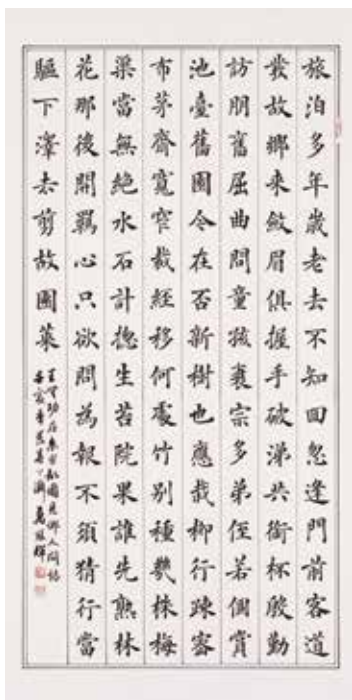 旅泊多年歲老去不知回忽逢門前客道
發故鄉來斂眉俱握手破涕共銜杯殷勤
訪朋舊屈曲問童孩衰宗多弟侄若個賞
池臺舊園今在否新樹也應栽柳行疎密
布茅齋寬窄裁經移何處竹別種幾株梅
渠當無絕水石計揔生苔院果誰先熟林
花那後開羈心只欲問為報不須猜行當
驅下澤去剪故園萊
王無功在京思故園見鄉人問詩